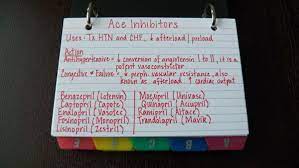 Ace Inhibitors
Uses: Tx HTN and CHF, ↓ afterload / preload
Action
Antihypertensive = ↓ conversion of angiotensin I to II, it is a
potent vasoconstrictor
Congestive ♥ Failure = ↓ periph. vascular resistance, also
known as afterload ↑ cardiac output
Benazepril (Lotensin) Moexipril (Univasc)
Captopril (Capote) Quinapril (Accupril)
Enalapril (Vasotec) Ramipril (Altace)
Fosinopril (Monopril) Trandolapril (Mavik)
Lisinopril (Zestril)